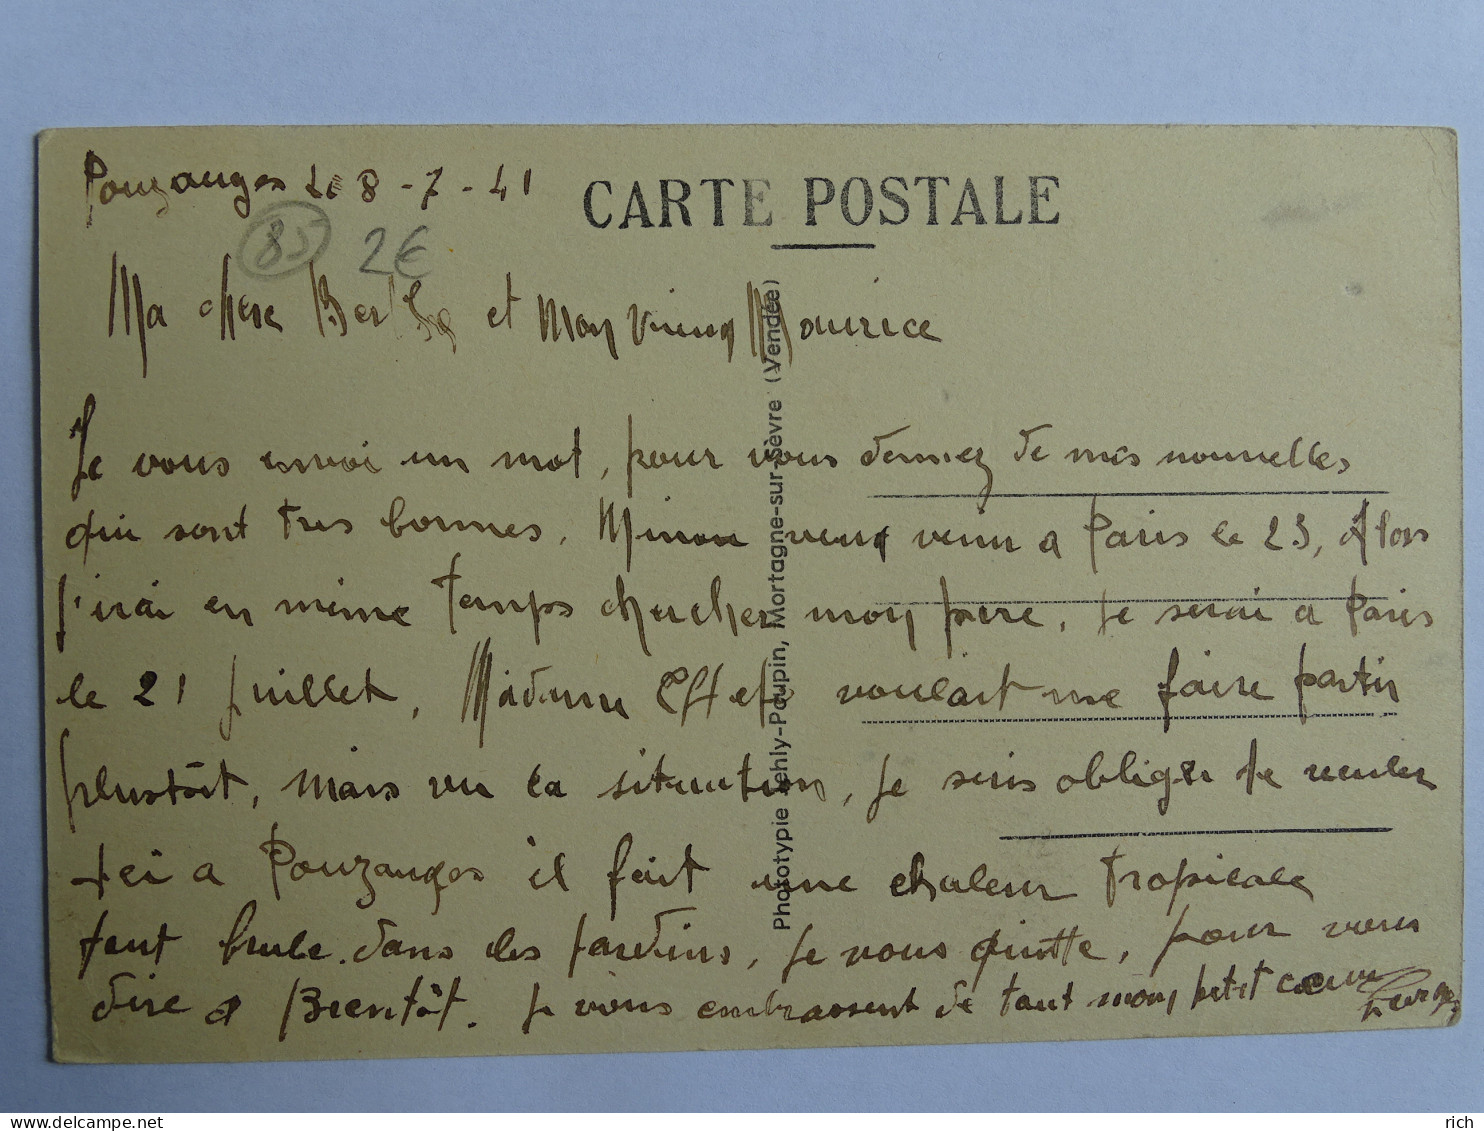 Pouzauges le 8-7-41
CARTE POSTALE
85
2€
Ma chère Bertha et Mon vieux Maurice
Je vous envoi un mot, pour vous donnez de mes nouvelles
qui sont très bonnes. Minou veux venir a Paris le 23, Alors
j'irai en même temps chercher mon père, je serai a Paris
le 21 juillet, Madame voulait me faire partir
plustôt, mais vu la situation, je suis obliger de reculer
Ici a Pouzauges il fait une chaleur tropicale
tout brule dans les jardins, je vous quitte, pour vous
dire a Bientôt. Je vous embrassent de tout mon petit cœur
Phototypie Jehly-Poupin, Mortagne-sur-Sèvre (Vendée)
www.delcampe.net
rich